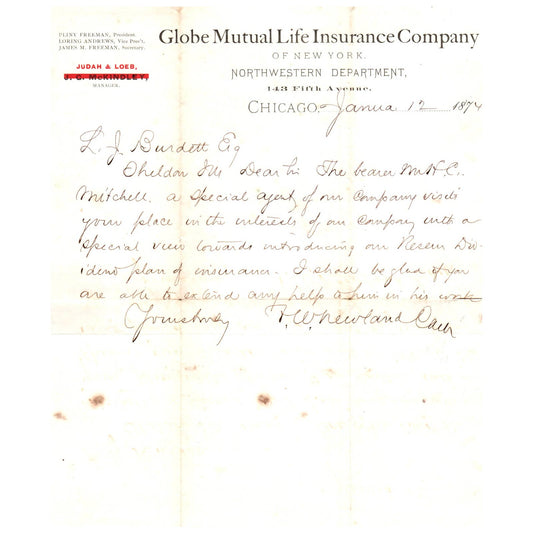 PLINY FREEMAN, President.
LORING ANDREWS, Vice Pres't.
JAMES M. FREEMAN, Secretary.
JUDAH & LOEB,
J. C. McKINDLEY,
MANAGER.
Globe Mutual Life Insurance Company
OF NEW YORK.
NORTHWESTERN DEPARTMENT,
143 Fifth Avenue.
CHICAGO, Janua 12 1874
L. J. Burdett Esq
Sheldon Ills Dear Sir The bearer Mr H. C.
Mitchell, a special agent of our Company visits
your place in the interests of our Company with a
special view towards introducing our Reserv Div-
idend plan of insurance. I shall be glad if you
are able to extend any helps to him in his work
Yours truly